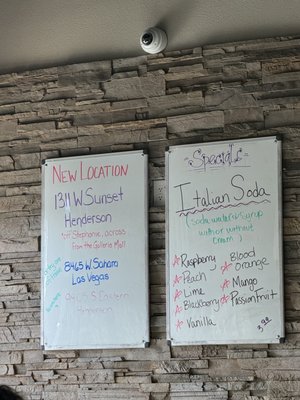 NEW LOCATION
1311 W Sunset
Henderson
Stephanie, across
from the Galleria Mall
8465 W Sahara
Las Vegas
S Eastern
Henderson
Specials
Italian Soda
(soda water w/ syrup
with or without
cream)
Raspberry
Peach
Lime
Blackberry
Vanilla
Blood
Orange
Mango
Passion Fruit
3.98